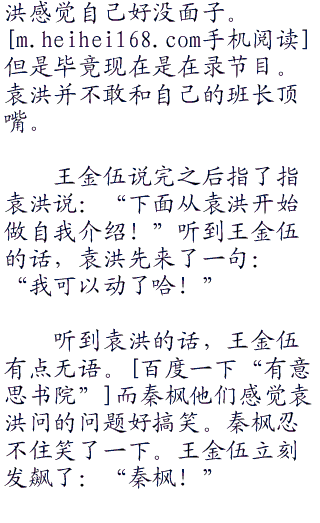 洪感觉自己好没面子。
[m.heihei168.com手机阅读]
但是毕竟现在是在录节目。
袁洪并不敢和自己的班长顶
嘴。
王金伍说完之后指了指
袁洪说：“下面从袁洪开始
做自我介绍！”听到王金伍
的话，袁洪先来了一句：
“我可以动了哈！”
听到袁洪的话，王金伍
有点无语。[百度一下“有意
思书院”]而秦枫他们感觉袁
洪问的问题好搞笑。秦枫忍
不住笑了一下。王金伍立刻
发飙了：“秦枫！”